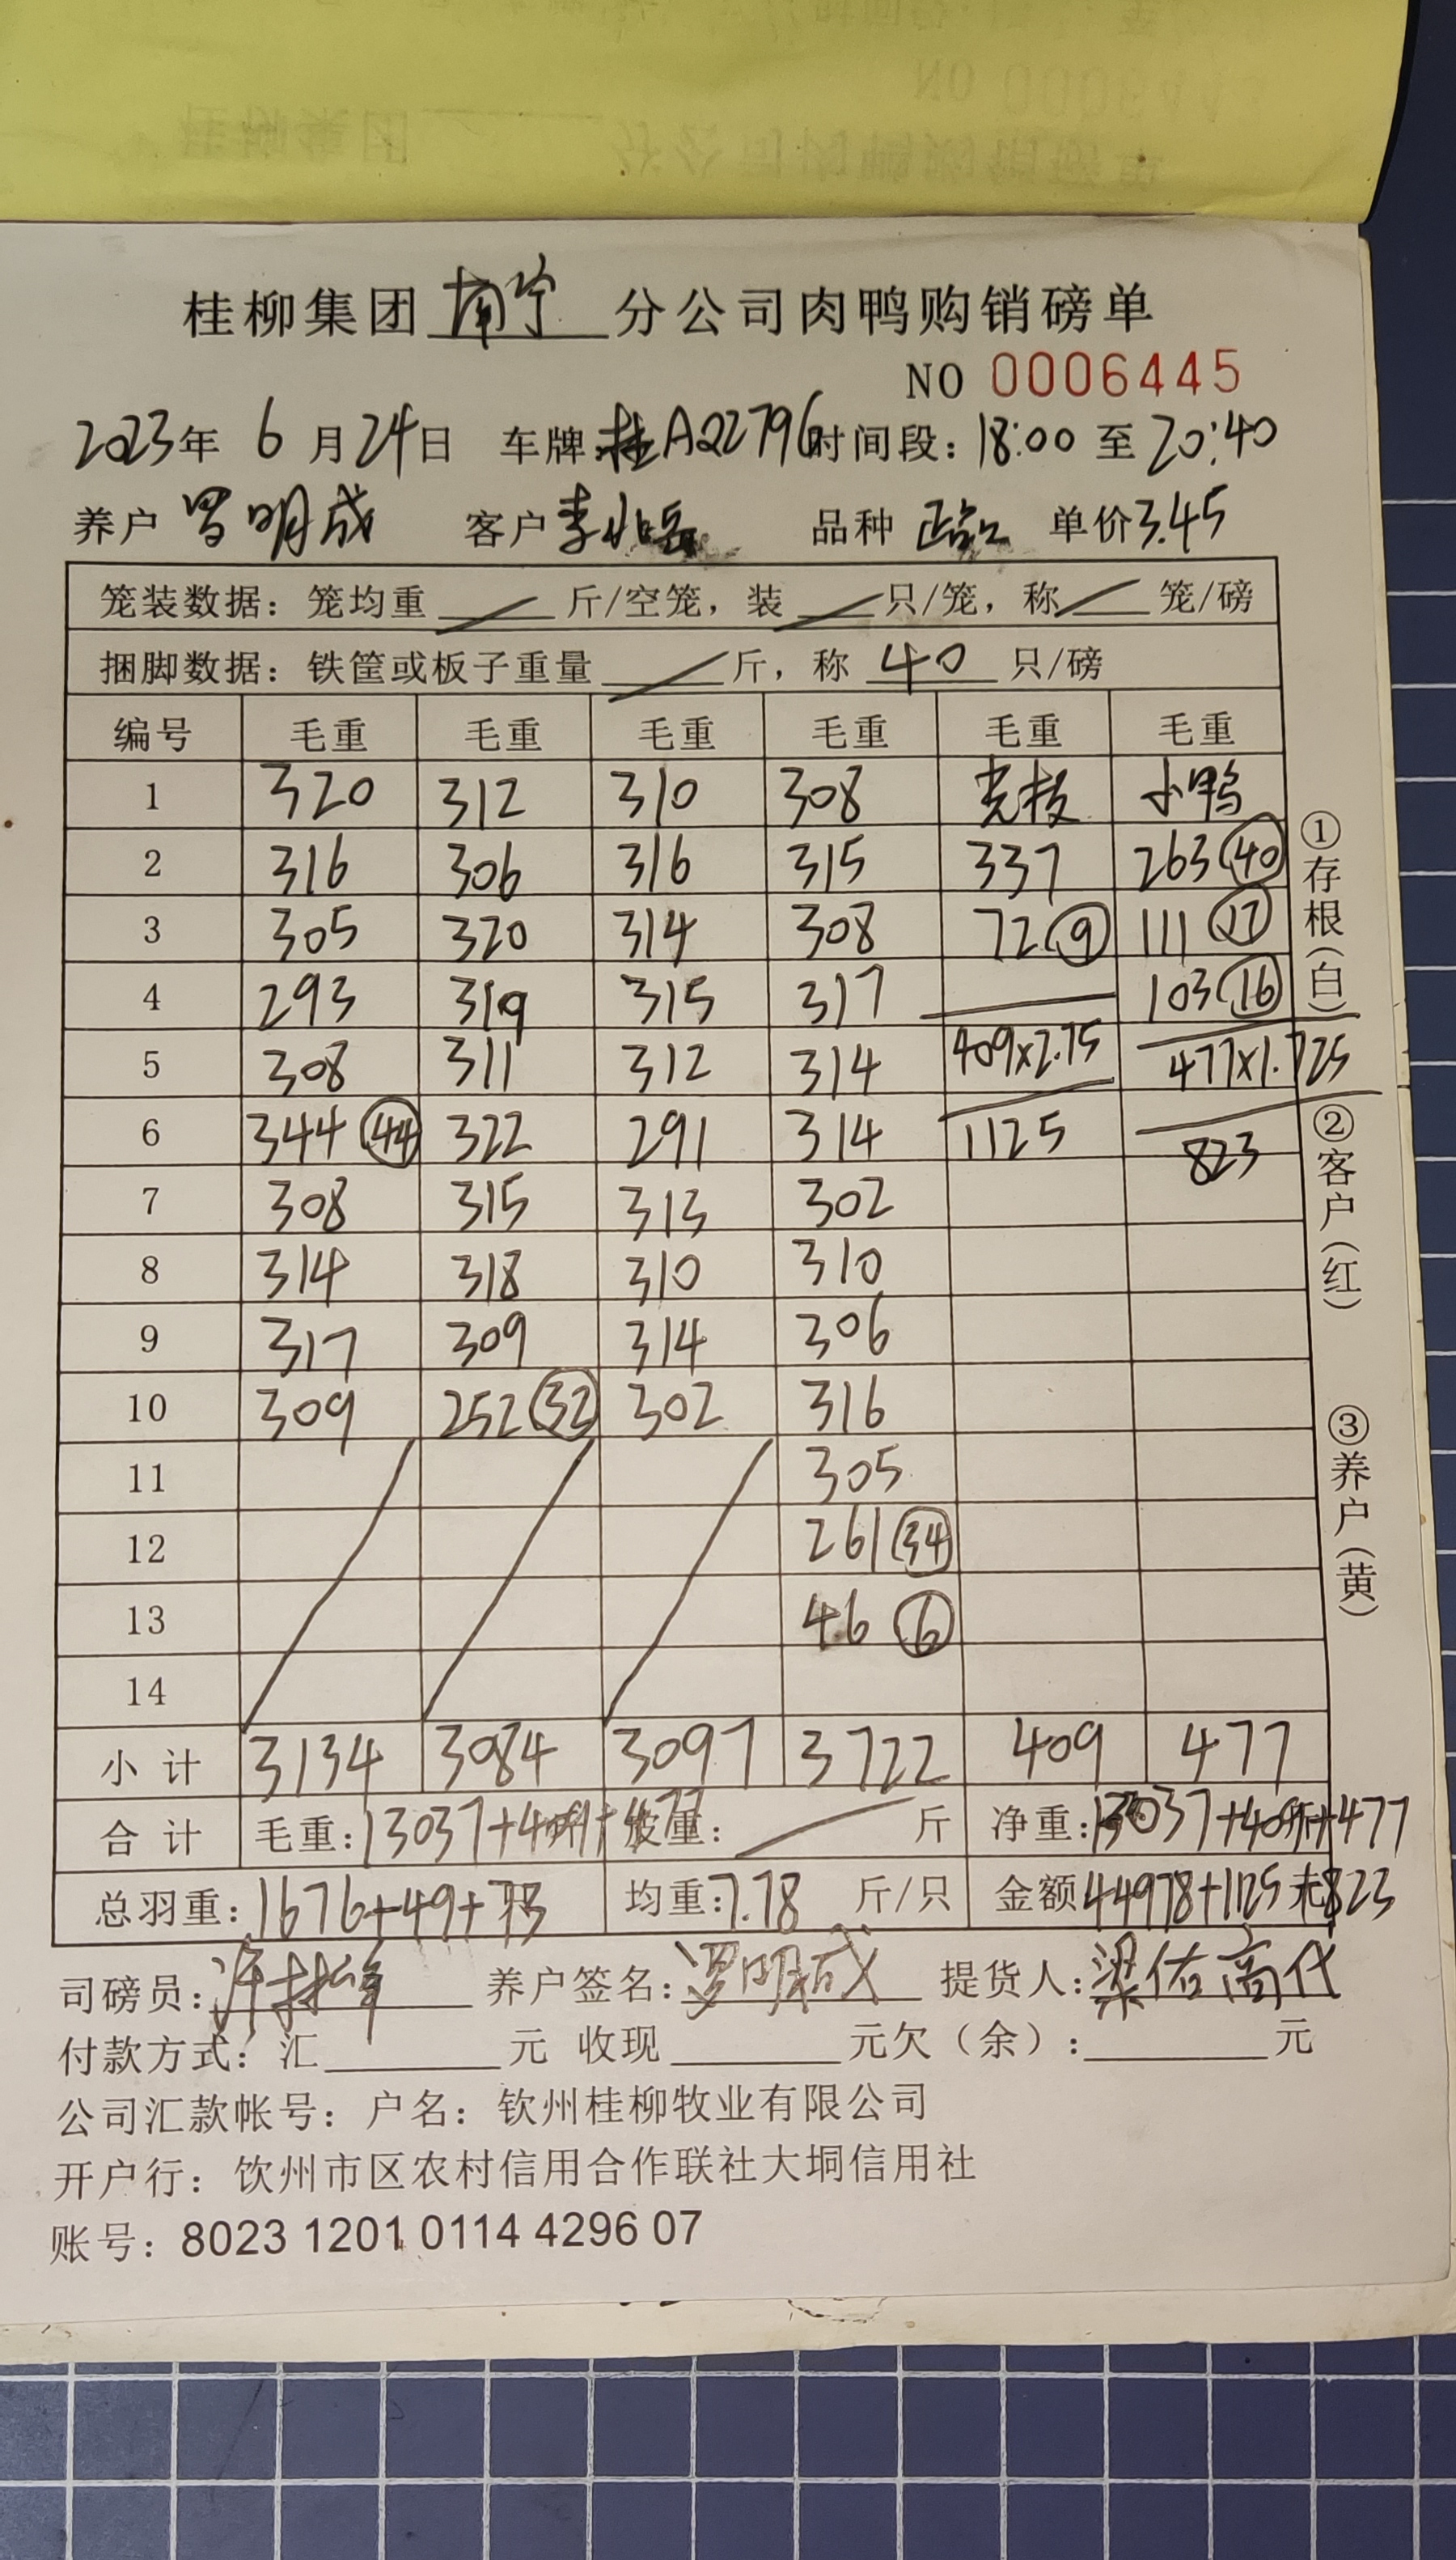 桂柳集团 南宁 分公司肉鸭购销磅单
NO 0006445
2023年 6 月 24 日 车牌:桂A02796 时间段: 18:00 至 20:40
养户 罗明成 客户 李 品种 单价 3.45
笼装数据: 笼均重 / 斤/空笼, 装 / 只/笼, 称 / 笼/磅
捆脚数据: 铁筐或板子重量 / 斤, 称 40 只/磅
编号 毛重 毛重 毛重 毛重 毛重 毛重
1 320 312 310 308 小鸭
2 316 306 316 315 337 263 (40)
3 305 320 314 308 72 (9) 111 (17)
4 293 319 315 317 103 (16)
5 308 311 312 314 409×2.75 477×1.725
6 344 (44) 322 291 314 1125 823
7 308 315 313 302
8 314 318 310 310
9 317 309 314 306
10 309 252 (32) 302 316
11 305
12 261 (34)
13 46 (6)
14
小计 3134 3084 3097 3722 409 477
合计 毛重: 13037+409+477 皮重: / 斤 净重: 13037+409+477
总羽重: 1676+49+73 均重: 7.78 斤/只 金额 44978+1125+823
司磅员: 养户签名: 罗明成 提货人: 梁佑高代
付款方式: 汇 元 收现 元欠(余): 元
公司汇款帐号: 户名: 钦州桂柳牧业有限公司
开户行: 饮州市区农村信用合作联社大垌信用社
账号: 8023 1201 0114 4296 07
①存根(白) ②客户(红) ③养户(黄)